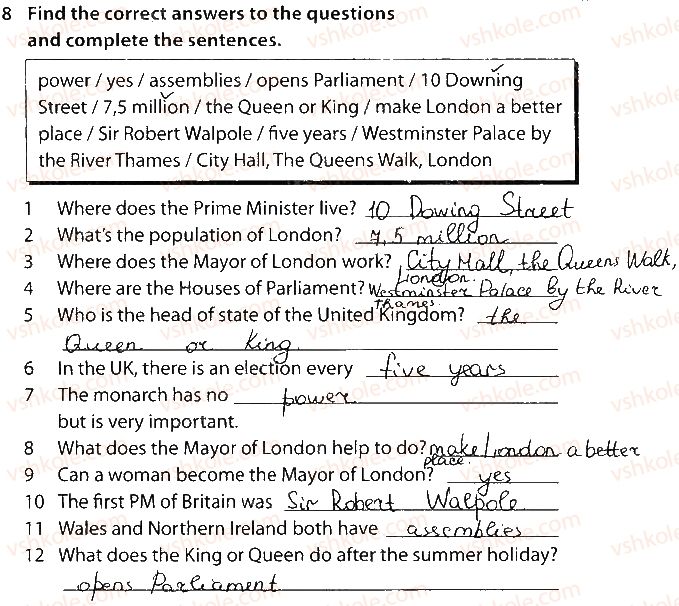 8 Find the correct answers to the questions
and complete the sentences.
power / yes / assemblies / opens Parliament / 10 Downing
Street / 7,5 million / the Queen or King / make London a better
place / Sir Robert Walpole / five years / Westminster Palace by
the River Thames / City Hall, The Queens Walk, London
1 Where does the Prime Minister live? 10 Dowing Street
2 What's the population of London? 7,5 million
3 Where does the Mayor of London work? City Hall, the Queens Walk,
London.
4 Where are the Houses of Parliament? Westminster Palace by the River
Thames.
5 Who is the head of state of the United Kingdom? the
Queen or King.
6 In the UK, there is an election every five years
7 The monarch has no power
but is very important.
8 What does the Mayor of London help to do? make London a better
place.
9 Can a woman become the Mayor of London? yes
10 The first PM of Britain was Sir Robert Walpole
11 Wales and Northern Ireland both have assemblies
12 What does the King or Queen do after the summer holiday?
opens Parliament
vshkole.com